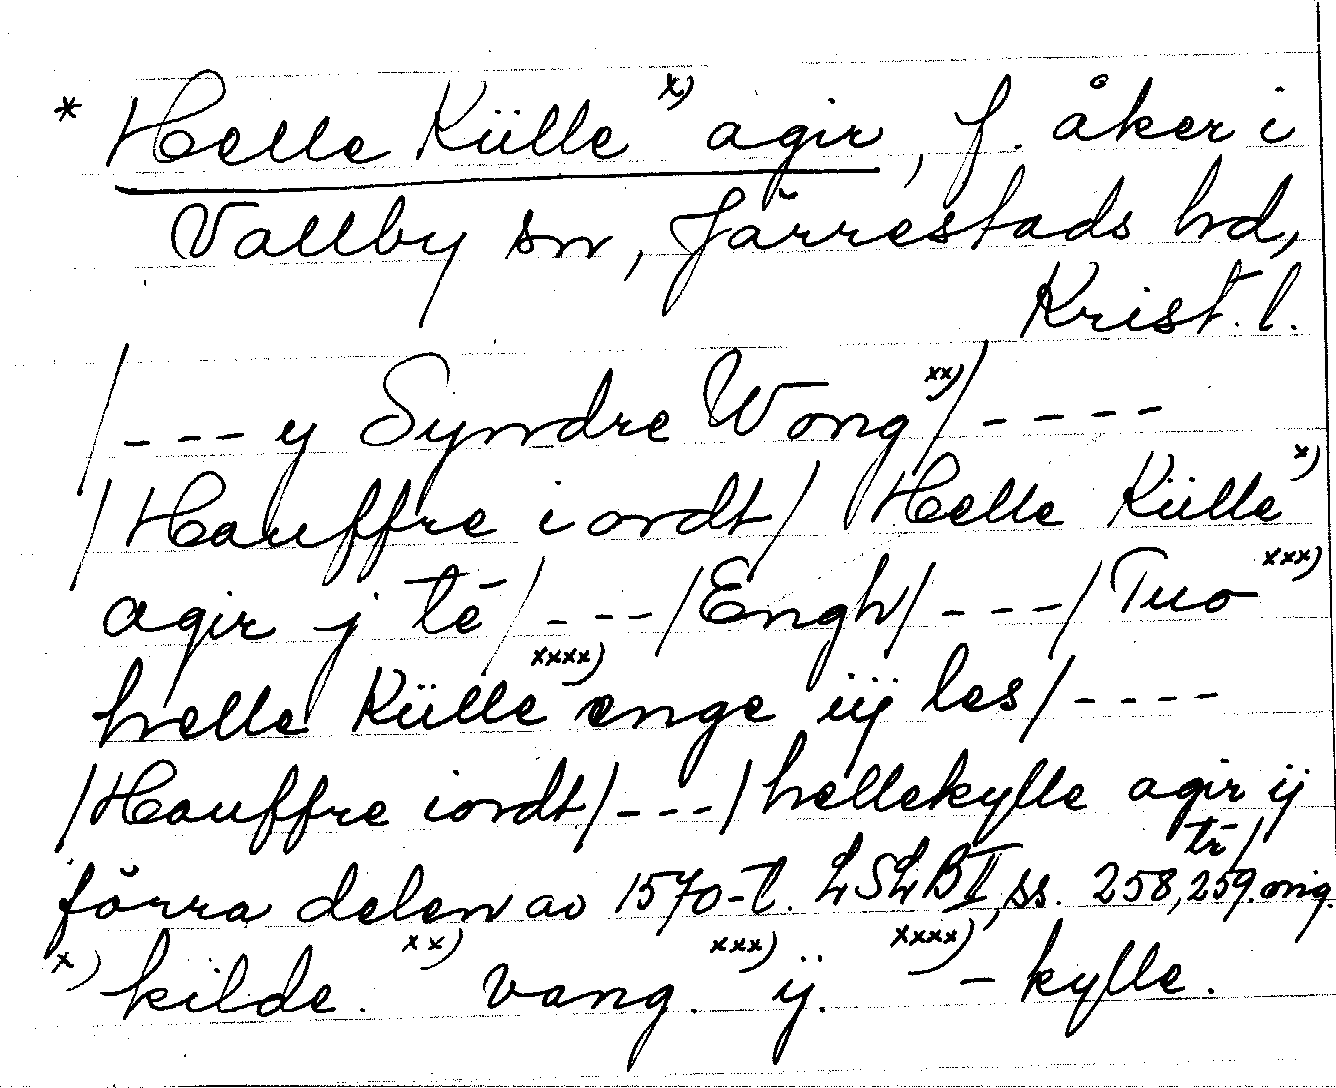 * Helle Külle x) agir, f. åker i
Vallby sn, Järrestads hd,
Krist. l.
/ --- y Syndre Wong xx) / ----
/ Hauffre iordt / Helle Külle x)
agir j tē / --- / Engh / --- / Tuo xxx)
helle Külle xxxx) enge iij les / ----
/ Hauffre iordt / --- / hellekylle agir ij
tr /
förra delen av 1570-t. LSLB II, ss. 258, 259. orig.
x) kilde. xx) vang. xxx) ij. xxxx) -kylle.